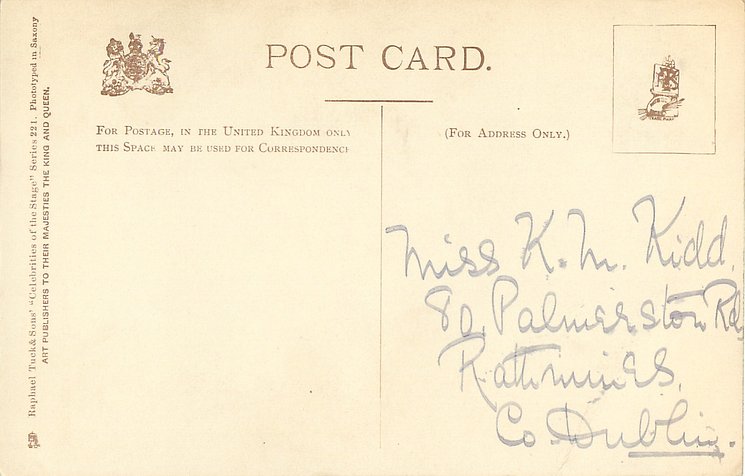 POST CARD.
FOR POSTAGE, IN THE UNITED KINGDOM ONLY
THIS SPACE MAY BE USED FOR CORRESPONDENCE
(FOR ADDRESS ONLY.)
Miss K. M. Kidd,
80, Palmerston Rd,
Rathmines,
Co. Dublin.
Raphael Tuck & Sons' "Celebrities of the Stage" Series 221. Phototyped in Saxony
ART PUBLISHERS TO THEIR MAJESTIES THE KING AND QUEEN.